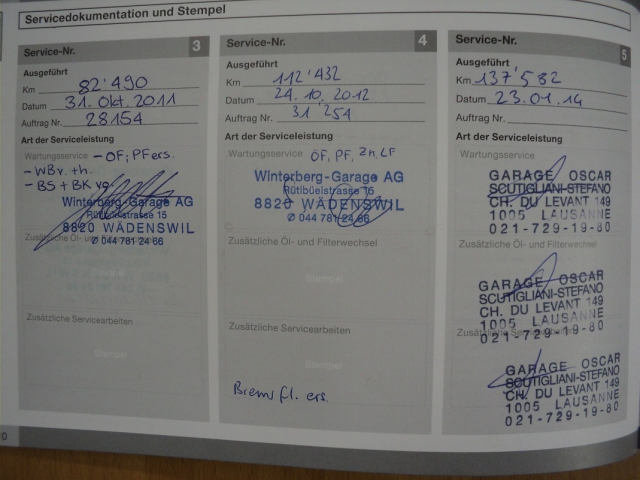 Servicedokumentation und Stempel
Service-Nr. 3
Ausgeführt
Km 82'490
Datum 31. Okt. 2011
Auftrag Nr. 28154
Art der Serviceleistung
Wartungsservice - OF, PF ers.
- WBv. + h.
- BS + BK
Winterberg-Garage AG
Rütibüelstrasse 15
8820 WÄDENSWIL
✆ 044 781 24 66
Zusätzliche Öl- und Filterwechsel
Zusätzliche Servicearbeiten
Stempel
Service-Nr. 4
Ausgeführt
Km 112'432
Datum 24.10.2012
Auftrag Nr. 31'254
Art der Serviceleistung
Wartungsservice OF, PF, Zn, LF
Winterberg-Garage AG
Rütibüelstrasse 15
8820 WÄDENSWIL
✆ 044 781 24 66
Zusätzliche Öl- und Filterwechsel
Stempel
Zusätzliche Servicearbeiten
Stempel
Bremsfl. ers.
Service-Nr. 5
Ausgeführt
Km 137'582
Datum 23.01.14
Auftrag Nr.
Art der Serviceleistung
Wartungsservice
GARAGE OSCAR
SCUTIGLIANI-STEFANO
CH. DU LEVANT 149
1005 LAUSANNE
021-729-19-80
Zusätzliche Öl- und Filterwechsel
GARAGE OSCAR
SCUTIGLIANI-STEFANO
CH. DU LEVANT 149
1005 LAUSANNE
Zusätzliche Servicearbeiten
021-729-19-80
GARAGE OSCAR
SCUTIGLIANI-STEFANO
CH. DU LEVANT 149
1005 LAUSANNE
021-729-19-80